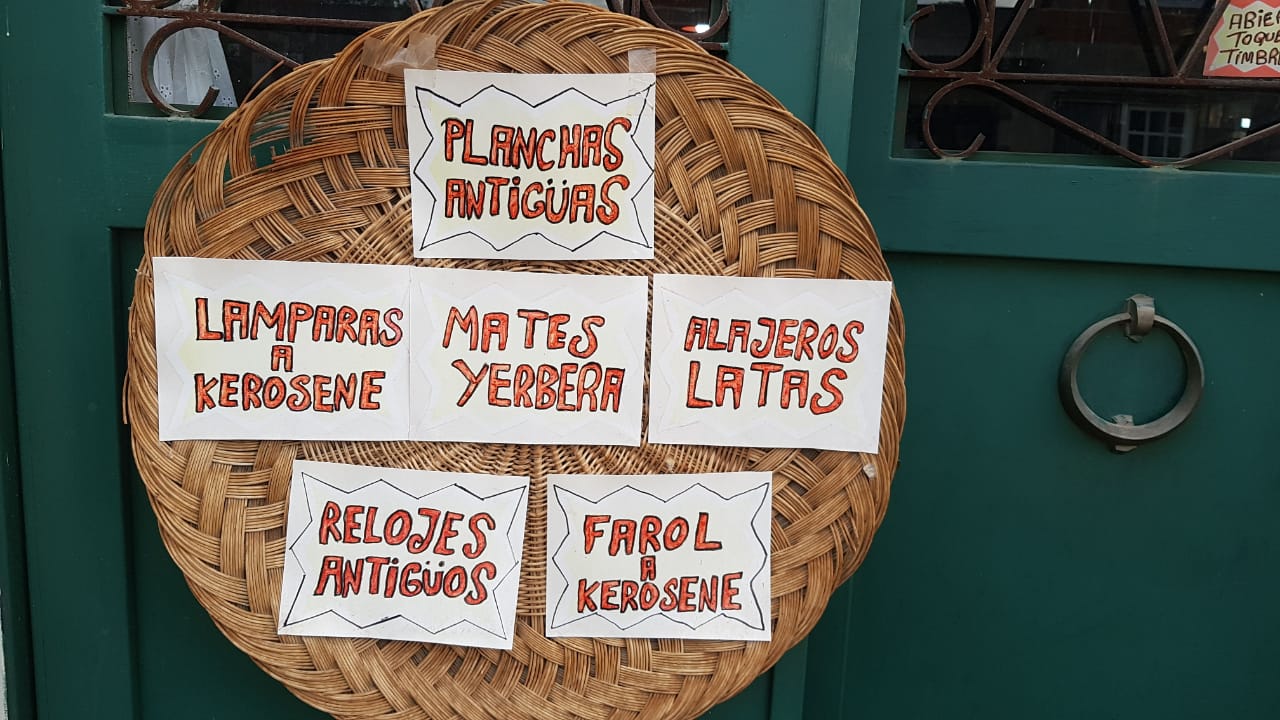 PLANCHAS
ANTIGÜAS
LAMPARAS
A
KEROSENE
MATES
YERBERA
ALAJEROS
LATAS
RELOJES
ANTIGÜOS
FAROL
A
KEROSENE
TIMBRE